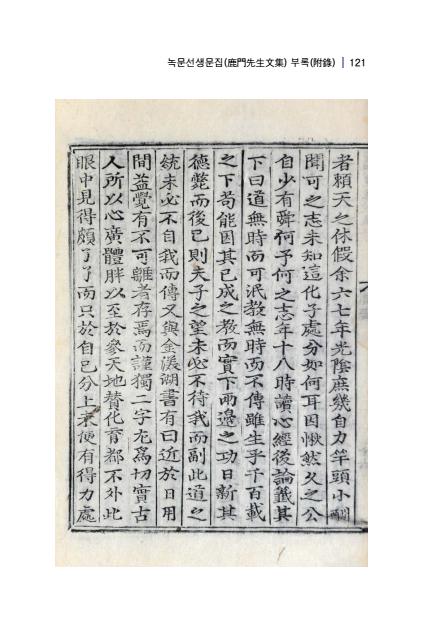 녹문선생문집(鹿門先生文集) 부록(附錄) | 121
者賴天之休假余六七年光陰庶幾自力竿頭小酬
聞可之志未知這化子處分如何耳因愀然久之公
自少有舜何予何之志年十八時讀心經後論籤其
下曰道無時而可泯敎無時而不傳雖生乎千百載
之下苟能因其已成之敎而實下兩邊之功日新其
德斃而後已則夫子之望未必不待我而副此道之
統未必不自我而傳又與金渼湖書有曰近於日用
間益覺有不可離者存焉而謹獨二字尤爲切實古
人所以心廣體胖以至於參天地賛化育都不外此
眼中見得頗了了而只於自己分上未便有得力處